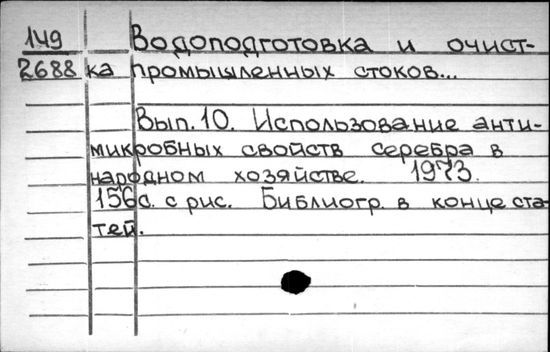 149 Водоподготовка и очист-
2688 ка промышленных стоков...
Вып. 10. Использование анти-
микробных свойств серебра в
народном хозяйстве. 1973.
156с. с рис. Библиогр. в конце ста-
тей.